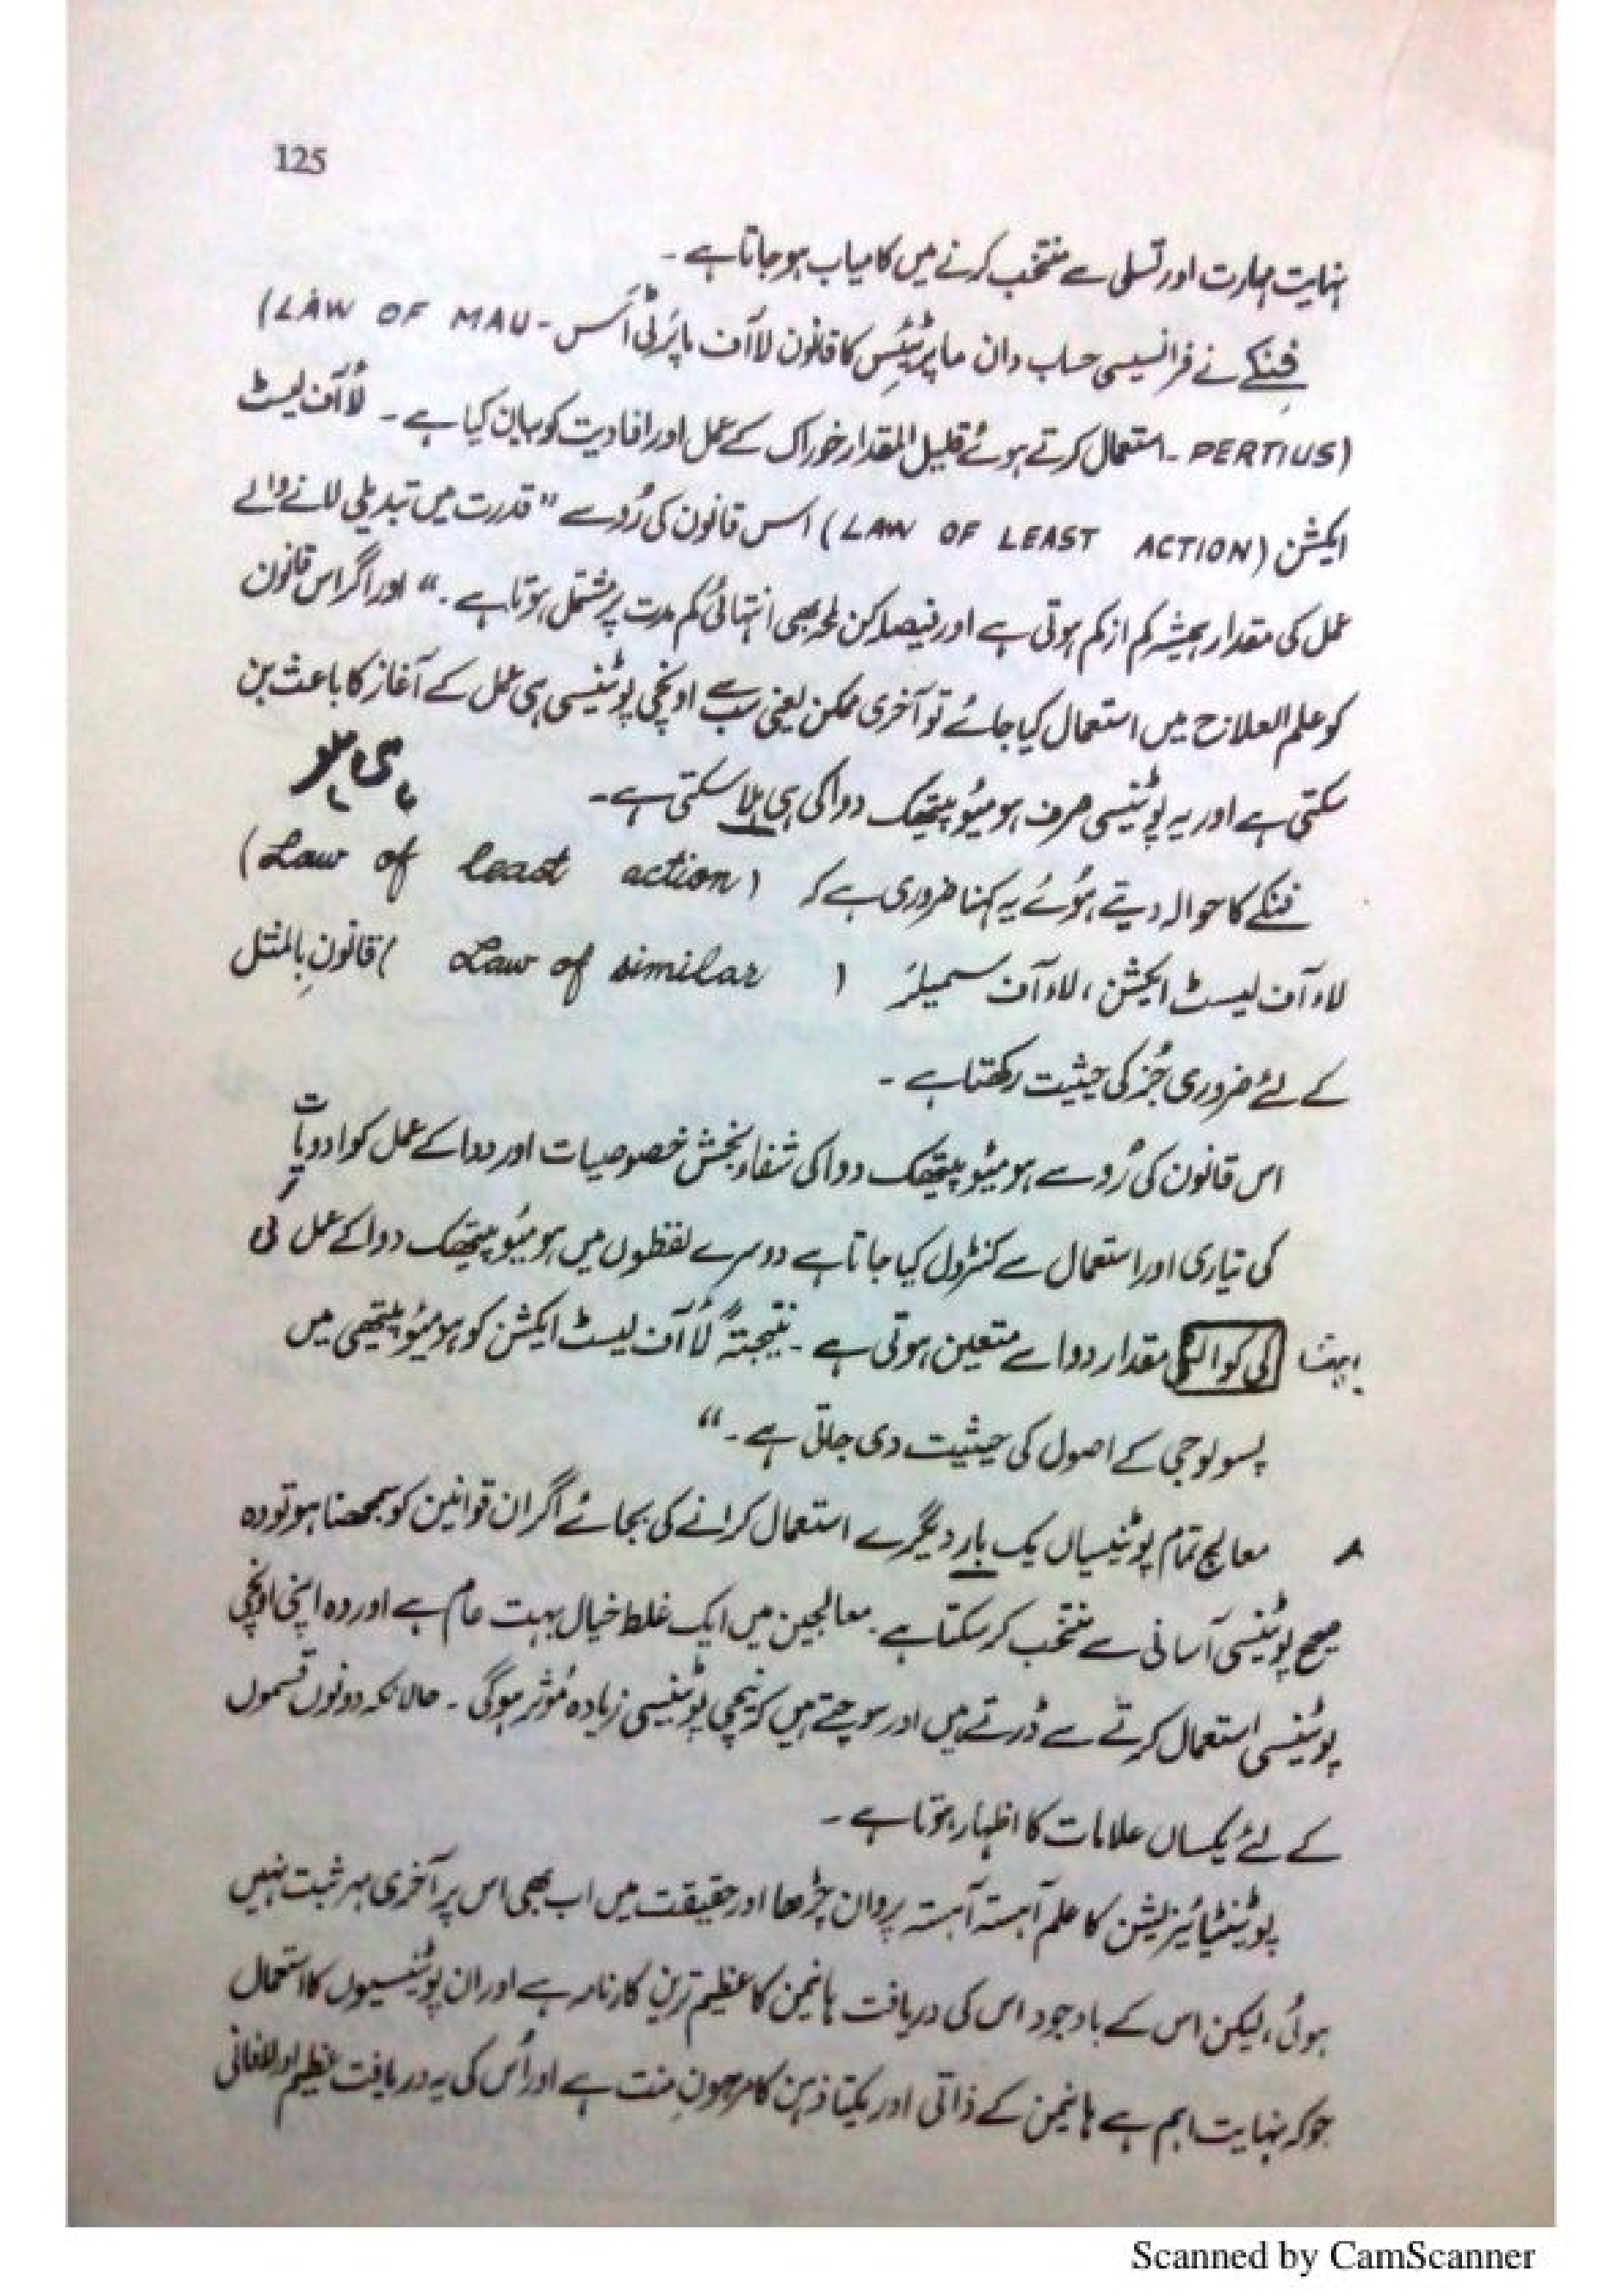 125
نہایت مہارت اور تسلی سے منتخب کرنے میں کامیاب ہو جاتا ہے ۔
فنکے نے فرانسیسی حساب دان ماپرٹیئس کا قانون لا آف ماپرٹی اَس (LAW OF MAU-
PERTIUS) - استعمال کرتے ہوئے قلیل المقدار خوراک کے عمل اور افادیت کو بیان کیا ہے ۔ لاُ آف لیسٹ
ایکشن (LAW OF LEAST ACTION) اس قانون کی رُو سے " قدرت میں تبدیلی لانے والے
عمل کی مقدار ہمیشہ کم از کم ہوتی ہے اور فیصلہ کن لمحہ بھی انتہائی کم مدت پر مشتمل ہوتا ہے ۔“ اور اگر اس قانون
کو علم العلاج میں استعمال کیا جائے تو آخری ممکن یعنی سب سے اونچی پوٹینسی ہی عمل کے آغاز کا باعث بن
سکتی ہے اور یہ پوٹینسی صرف ہومیوپیتھک دوا کی ہی ہلا سکتی ہے ۔
فنکے کا حوالہ دیتے ہوئے یہ کہنا ضروری ہے کہ (Law of least action)
لاء آف لیسٹ ایکشن ، لاء آف سمیلر ( Law of similar ) قانونِ بالمثل
کے لئے ضروری جُز کی حیثیت رکھتا ہے ۔
اس قانون کی رُو سے ہومیوپیتھک دوا کی شفاء بخش خصوصیات اور دوا کے عمل کو ادویات
کی تیاری اور استعمال سے کنٹرول کیا جاتا ہے دوسرے لفظوں میں ہومیوپیتھک دوا کے عمل کی
کی کوالٹی مقدار دوا سے متعین ہوتی ہے ۔ نتیجتہً لاُ آف لیسٹ ایکشن کو ہومیوپیتھی میں
پسولوجی کے اصول کی حیثیت دی جاتی ہے ۔“
معالج تمام پوٹینسیاں یک بار دیگرے استعمال کرانے کی بجائے اگر ان قوانین کو سمجھتا ہو تو وہ
صیح پوٹینسی آسانی سے منتخب کر سکتا ہے ۔ معالجین میں ایک غلط خیال بہت عام ہے اور وہ اپنی اونچی
پوٹینسی استعمال کرتے سے ڈرتے ہیں اور سوچتے ہیں کہ نیچی پوٹینسی زیادہ مُوثر ہو گی ۔ حالانکہ دونوں قسموں
کے لئے یکساں علامات کا اظہار ہوتا ہے ۔
پوٹینٹیائیزیشن کا علم آہستہ آہستہ پروان چڑھا اور حقیقت میں اب بھی اس پر آخری مہر ثبت نہیں
ہوئی ، لیکن اس کے باوجود اس کی دریافت ہانیمن کا عظیم ترین کارنامہ ہے اور ان پوٹینسیوں کا استعمال
جو کہ نہایت اہم ہے ہانیمن کے ذاتی اور یکتا ذہن کا مرہونِ منت ہے اور اُس کی یہ دریافت عظیم اور لافانی
Scanned by CamScanner